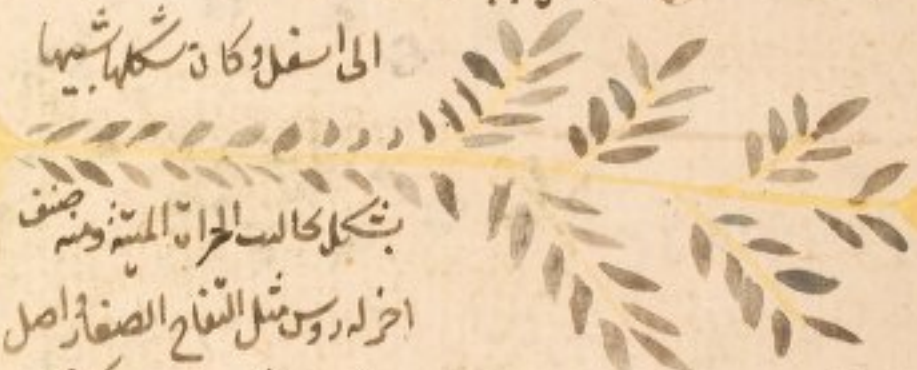 الى اسفل وكان شكلها شبيها
بشكل الحرات الميتة ومنه صنف
اخر له روس مثل التفاح الصغار واصل